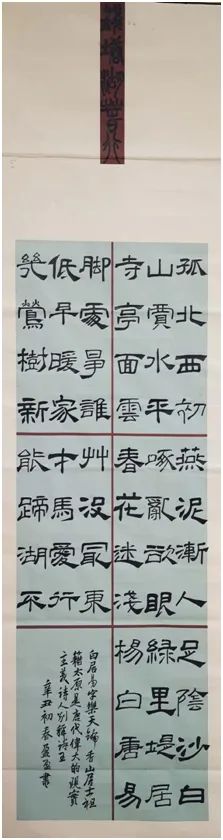 錢塘湖春行
孤山寺
北賈亭
西水面
初平雲
脚低幾
處早鶯
爭暖樹
誰家新
燕啄春
泥亂花
漸欲迷
人眼淺
艸才能
沒馬蹄
最愛湖
東行不
足綠楊
陰里白
沙堤唐
白居易
白居易字樂天號香山居士祖
籍太原是唐代偉大的現實
主義詩人別釋詩王
辛丑初春盈盈書